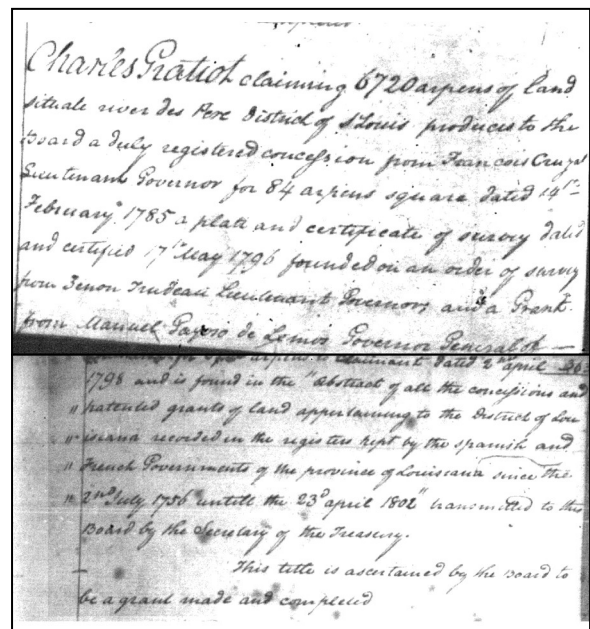 Charles Gratiot claiming 6720 arpens of land
situate river des Pere District of St Louis produces to the
Board a duly registered concession from Francois Cruzat
Lieutenant Governor for 84 arpens square dated 14th
February 1785 a platt and certificate of survey dated
and certified 17th May 1796 founded on an order of survey
from Zenon Trudeau Lieutenant Governor, and a Grant
from Manuel Gayoso de Lemos Governor General of —
arpens to claimant dated 2d april
1798 and is found in the "Abstract of all the concessions and
" patented grants of land appertaining to the District of Lou
" isiana recorded in the registers kept by the spanish and
" French Governments of the province of Louisiana since the
" 2nd July 1756 untill the 23d april 1802" transmitted to this
Board by the Secretary of the Treasury.
This title is ascertained by the Board to
be a grant made and completed